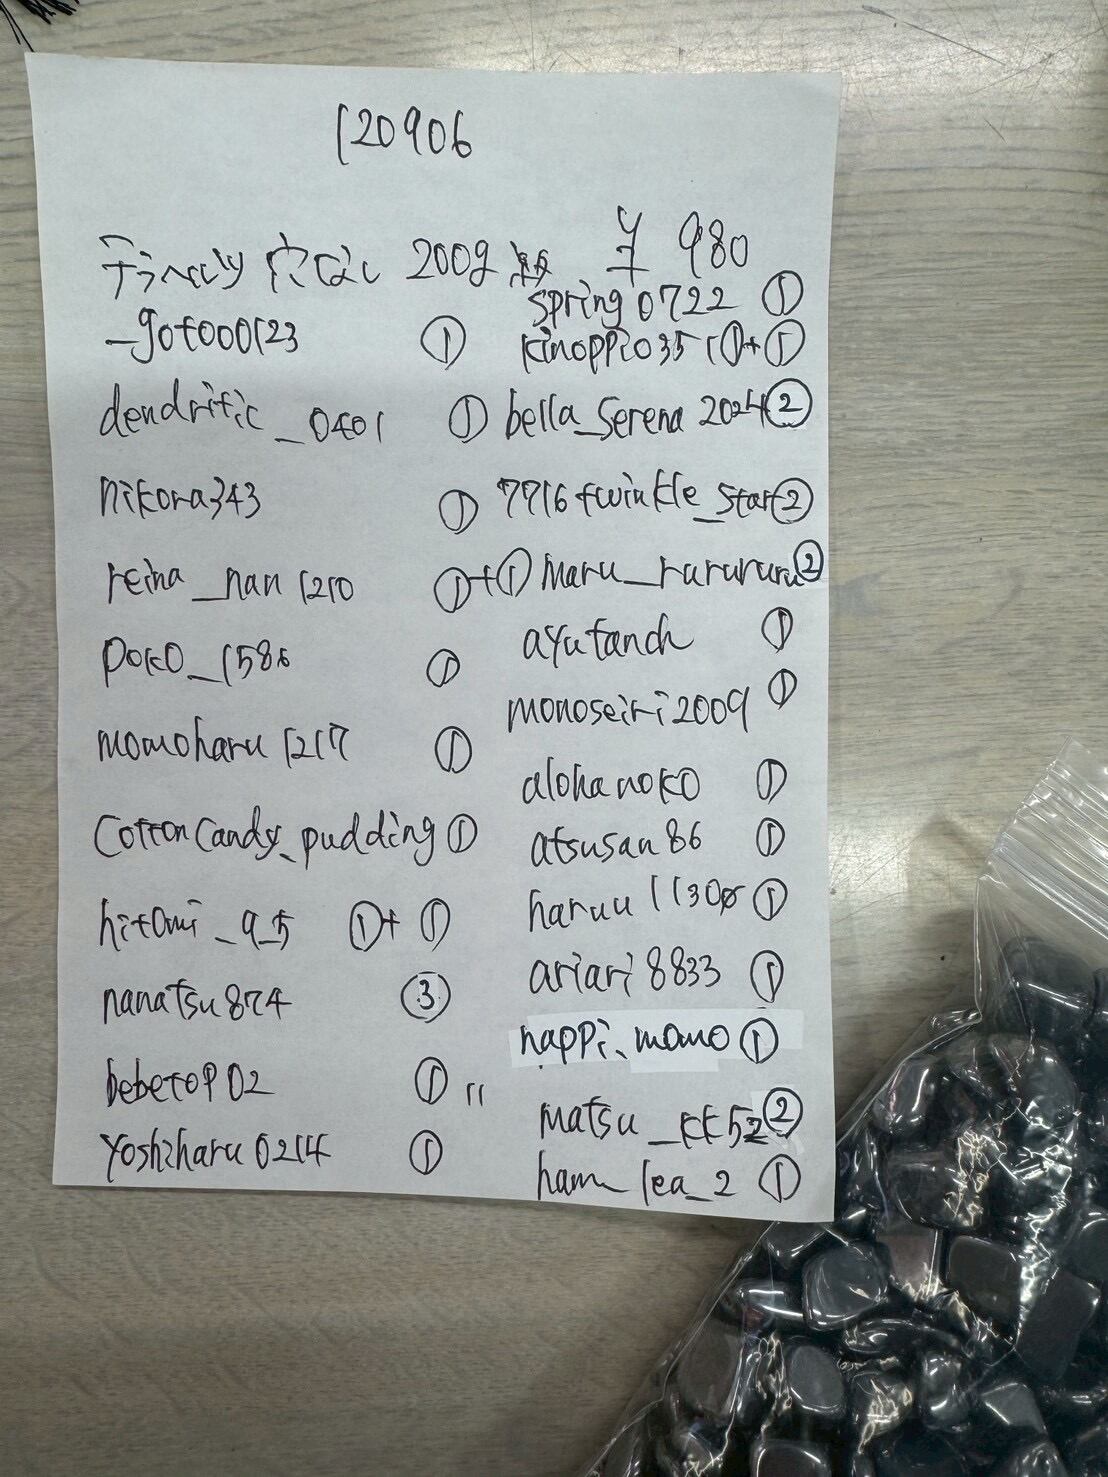 120906
テラヘルツ 穴なし 200g ¥ 980
_goto00123 ①
dendritic_0401 ①
nikora343 ①
reina_nan1210 ①+①
poko_1586 ①
momoharu1217 ①
cottoncandy_pudding ①
hitomi_9_5 ①+ ①
nanatsu874 ③
bebetop02 ①
yoshiharu0214 ①
spring0722 ①
kinoppio351 ①+①
bella_serena2024 ②
7716twinkle_star ②
maru_rurururu ②
ayutanch ①
monoseiri2009 ①
alohanoko ①
atsusan86 ①
haruu1130 ①
ariari8833 ①
happi_momo ①
matsu_kk52 ②
ham_lea_2 ①